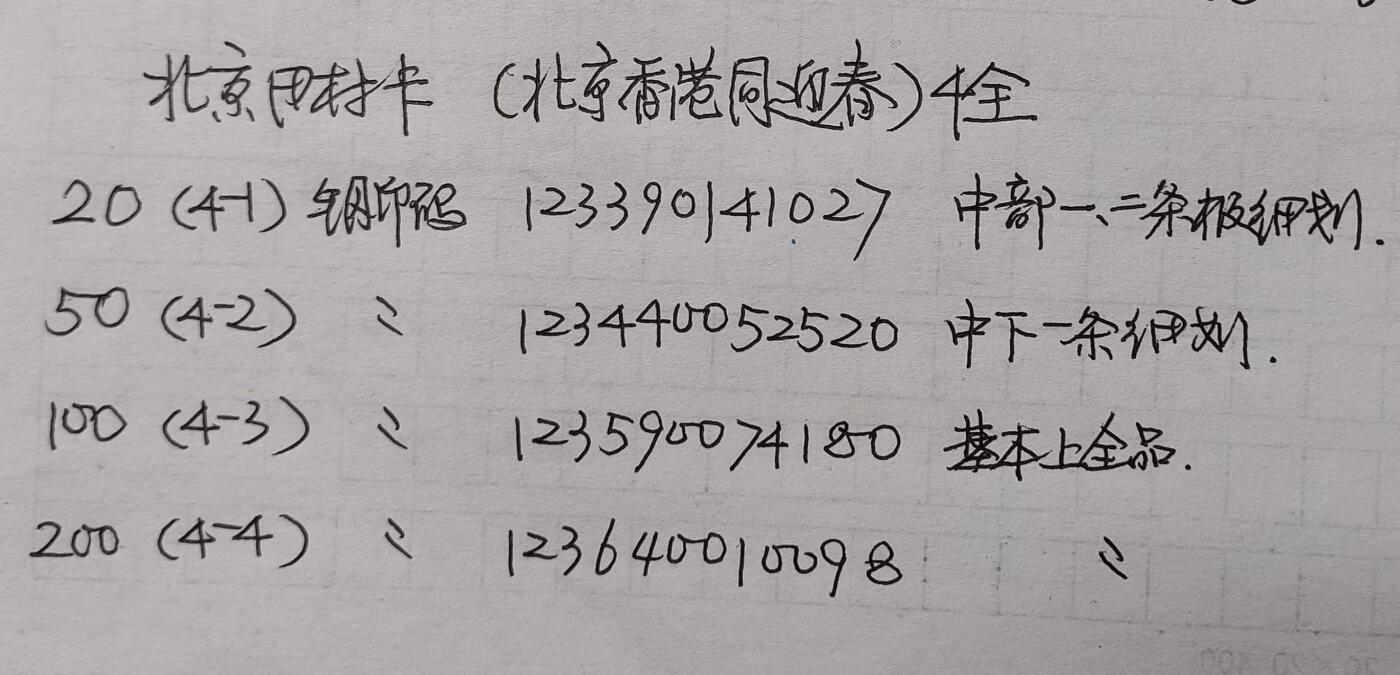 北京田村卡 (北京香港同迎春) 4全
20 (4-1) 钢印码 123390141027 中部一、二条极细划.
50 (4-2) 〃 123440052520 中下一条细划.
100 (4-3) 〃 123590074180 基本上全品.
200 (4-4) 〃 123640010098 〃